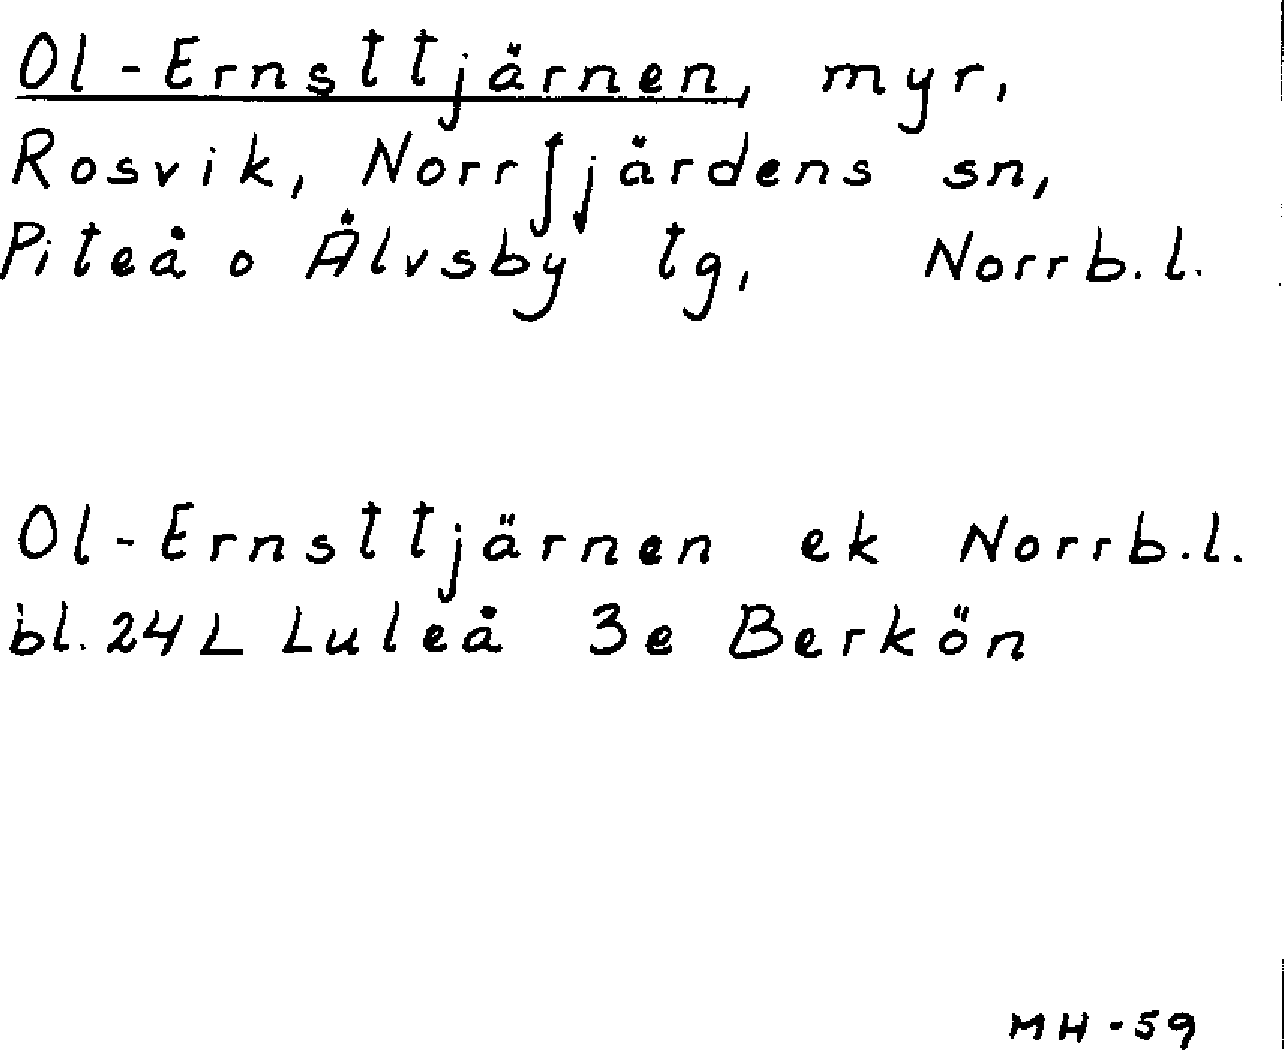 Ol-Ernsttjärnen, myr,
Rosvik, Norrfjärdens sn,
Piteå o Älvsby tg, Norrb.l.
Ol-Ernsttjärnen ek Norrb.l.
bl. 24L Luleå 3e Berkön
MH-59